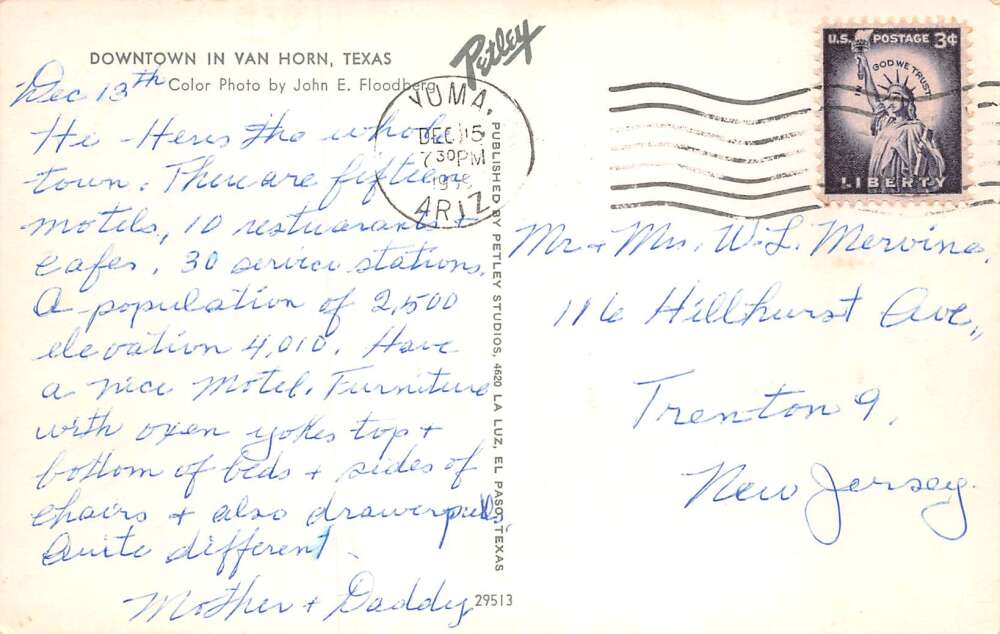 DOWNTOWN IN VAN HORN, TEXAS
Color Photo by John E. Floodberg
Petley
Dec 13th
Hi - Heres the whole
town. There are fifteen
motels, 10 restuarants +
cafes, 30 service stations.
A population of 2,500
elevation 4,010. Have
a nice motel. Furniture
with oxen yokes top +
bottom of beds + sides of
chairs + also drawerpulls,
Quite different.
Mother + Daddy
29513
PUBLISHED BY PETLEY STUDIOS, 4620 LA LUZ, EL PASO, TEXAS
YUMA,
DEC 15
7 30 PM
ARIZ
U.S. POSTAGE 3¢
IN GOD WE TRUST
LIBERTY
Mr + Mrs. W. L. Mervine,
116 Hillhurst Ave.,
Trenton 9,
New Jersey.